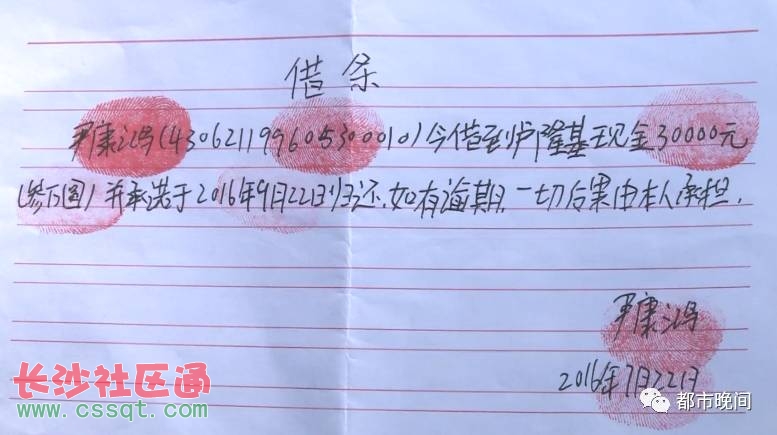 借条
严康鸿(430621199605300010)今借到炉隆基现金30000元
(叁万圆)并承诺于2016年9月22日归还,如有逾期,一切后果由本人承担.
严康鸿
2016年7月22日
长沙社区通
www.cssqt.com
都市晚间